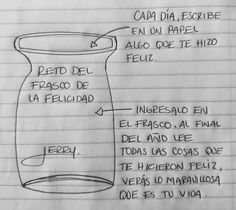 CADA DÍA, ESCRIBE
EN UN PAPEL
ALGO QUE TE HIZO
FELIZ.
RETO DEL
FRASCO DE
LA FELICIDAD
INGRESALO EN
EL FRASCO. AL FINAL
DEL AÑO LEE
TODAS LAS COSAS QUE
TE HICIERON FELIZ,
VERÁS LO MARAVILLOSA
QUE ES TU VIDA.
JERRY.